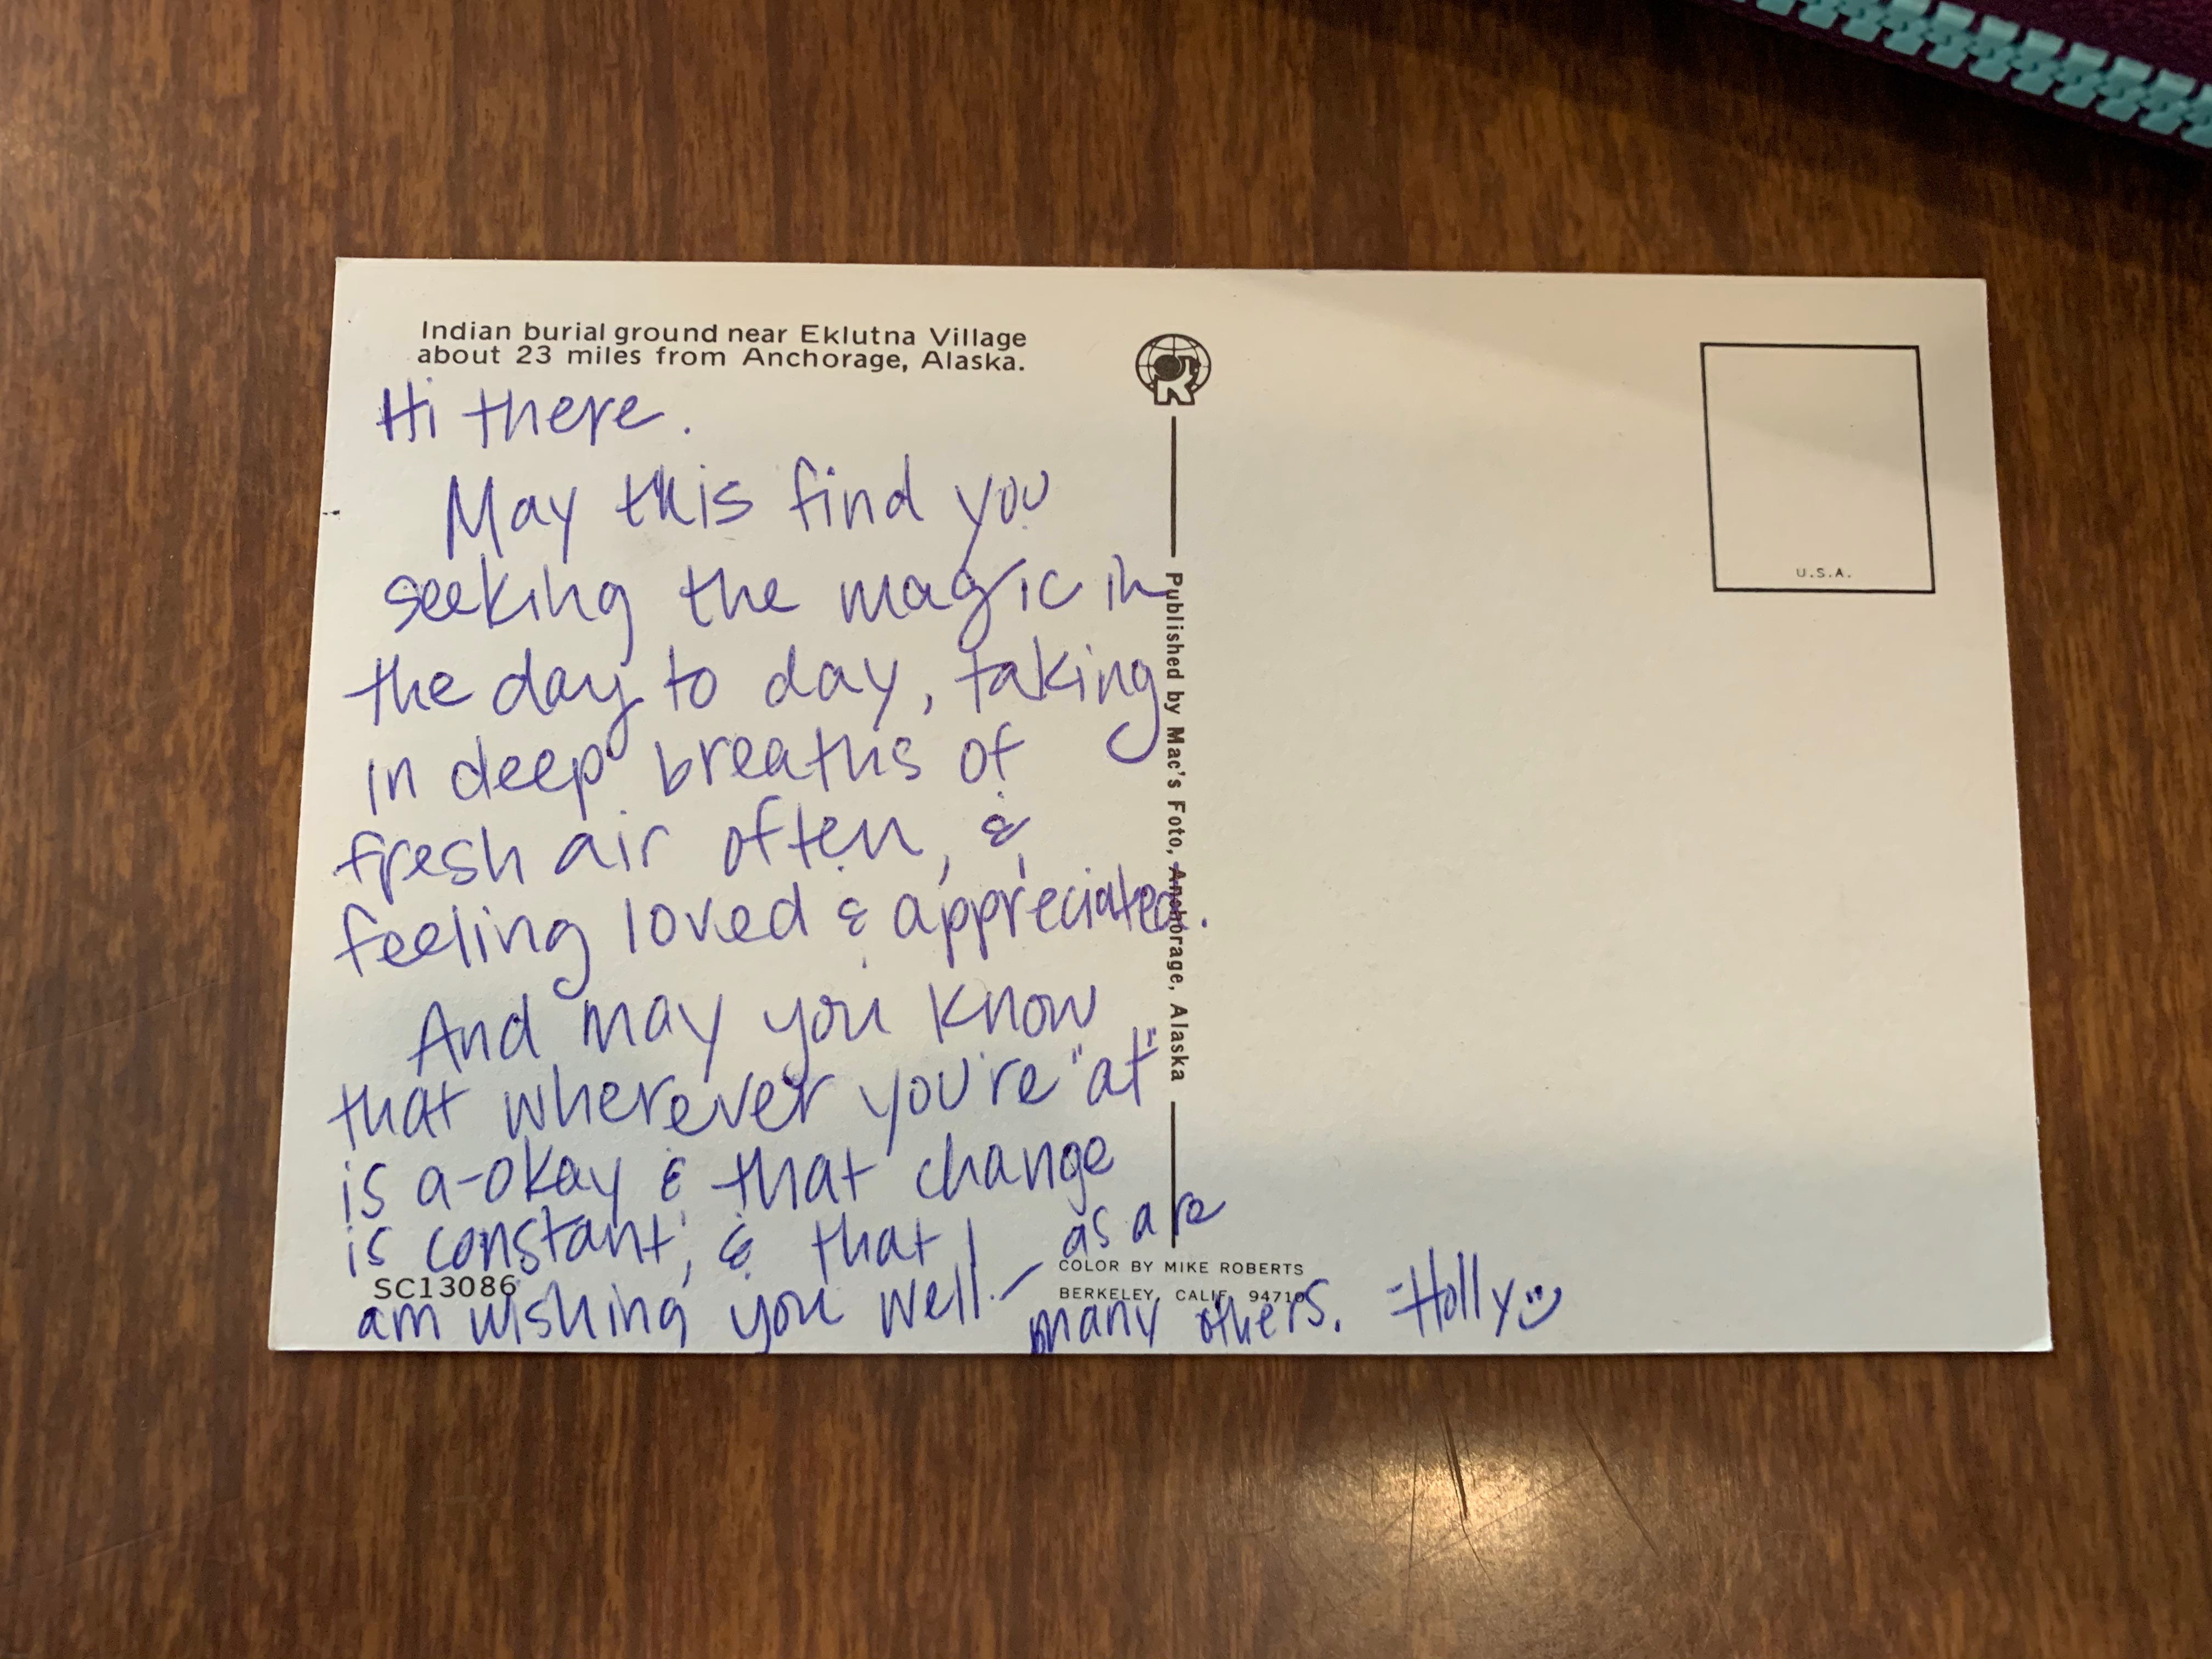 Indian burial ground near Eklutna Village
about 23 miles from Anchorage, Alaska.
Hi there.
May this find you
seeking the magic in
the day to day, taking
in deep breaths of
fresh air often, &
feeling loved & appreciated.
And may you know
that wherever you're "at"
is a-okay & that change
is constant, & that I
am wishing you well — as are
many others. -Holly
SC13086
R
Published by Mac's Foto, Anchorage, Alaska
COLOR BY MIKE ROBERTS
BERKELEY, CALIF. 94710
U.S.A.